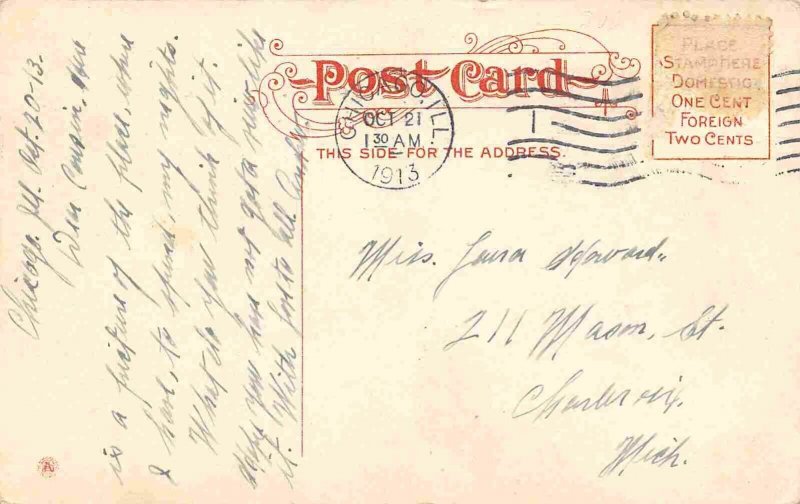 Post Card
THIS SIDE FOR THE ADDRESS.
PLACE
STAMP HERE
DOMESTIC
ONE CENT
FOREIGN
TWO CENTS
CHICAGO, ILL.
OCT 21
1 30 AM
1913
Chicago, Ill. Oct. 20-13.
Dear Cousin, Here
is a picture of the place, where
I have, to spend, my nights.
What do you think of it.
Hope you have not got a new
it. With love to all.
Miss. Howard.
211 Mason, St.
Charlevoix,
Mich.